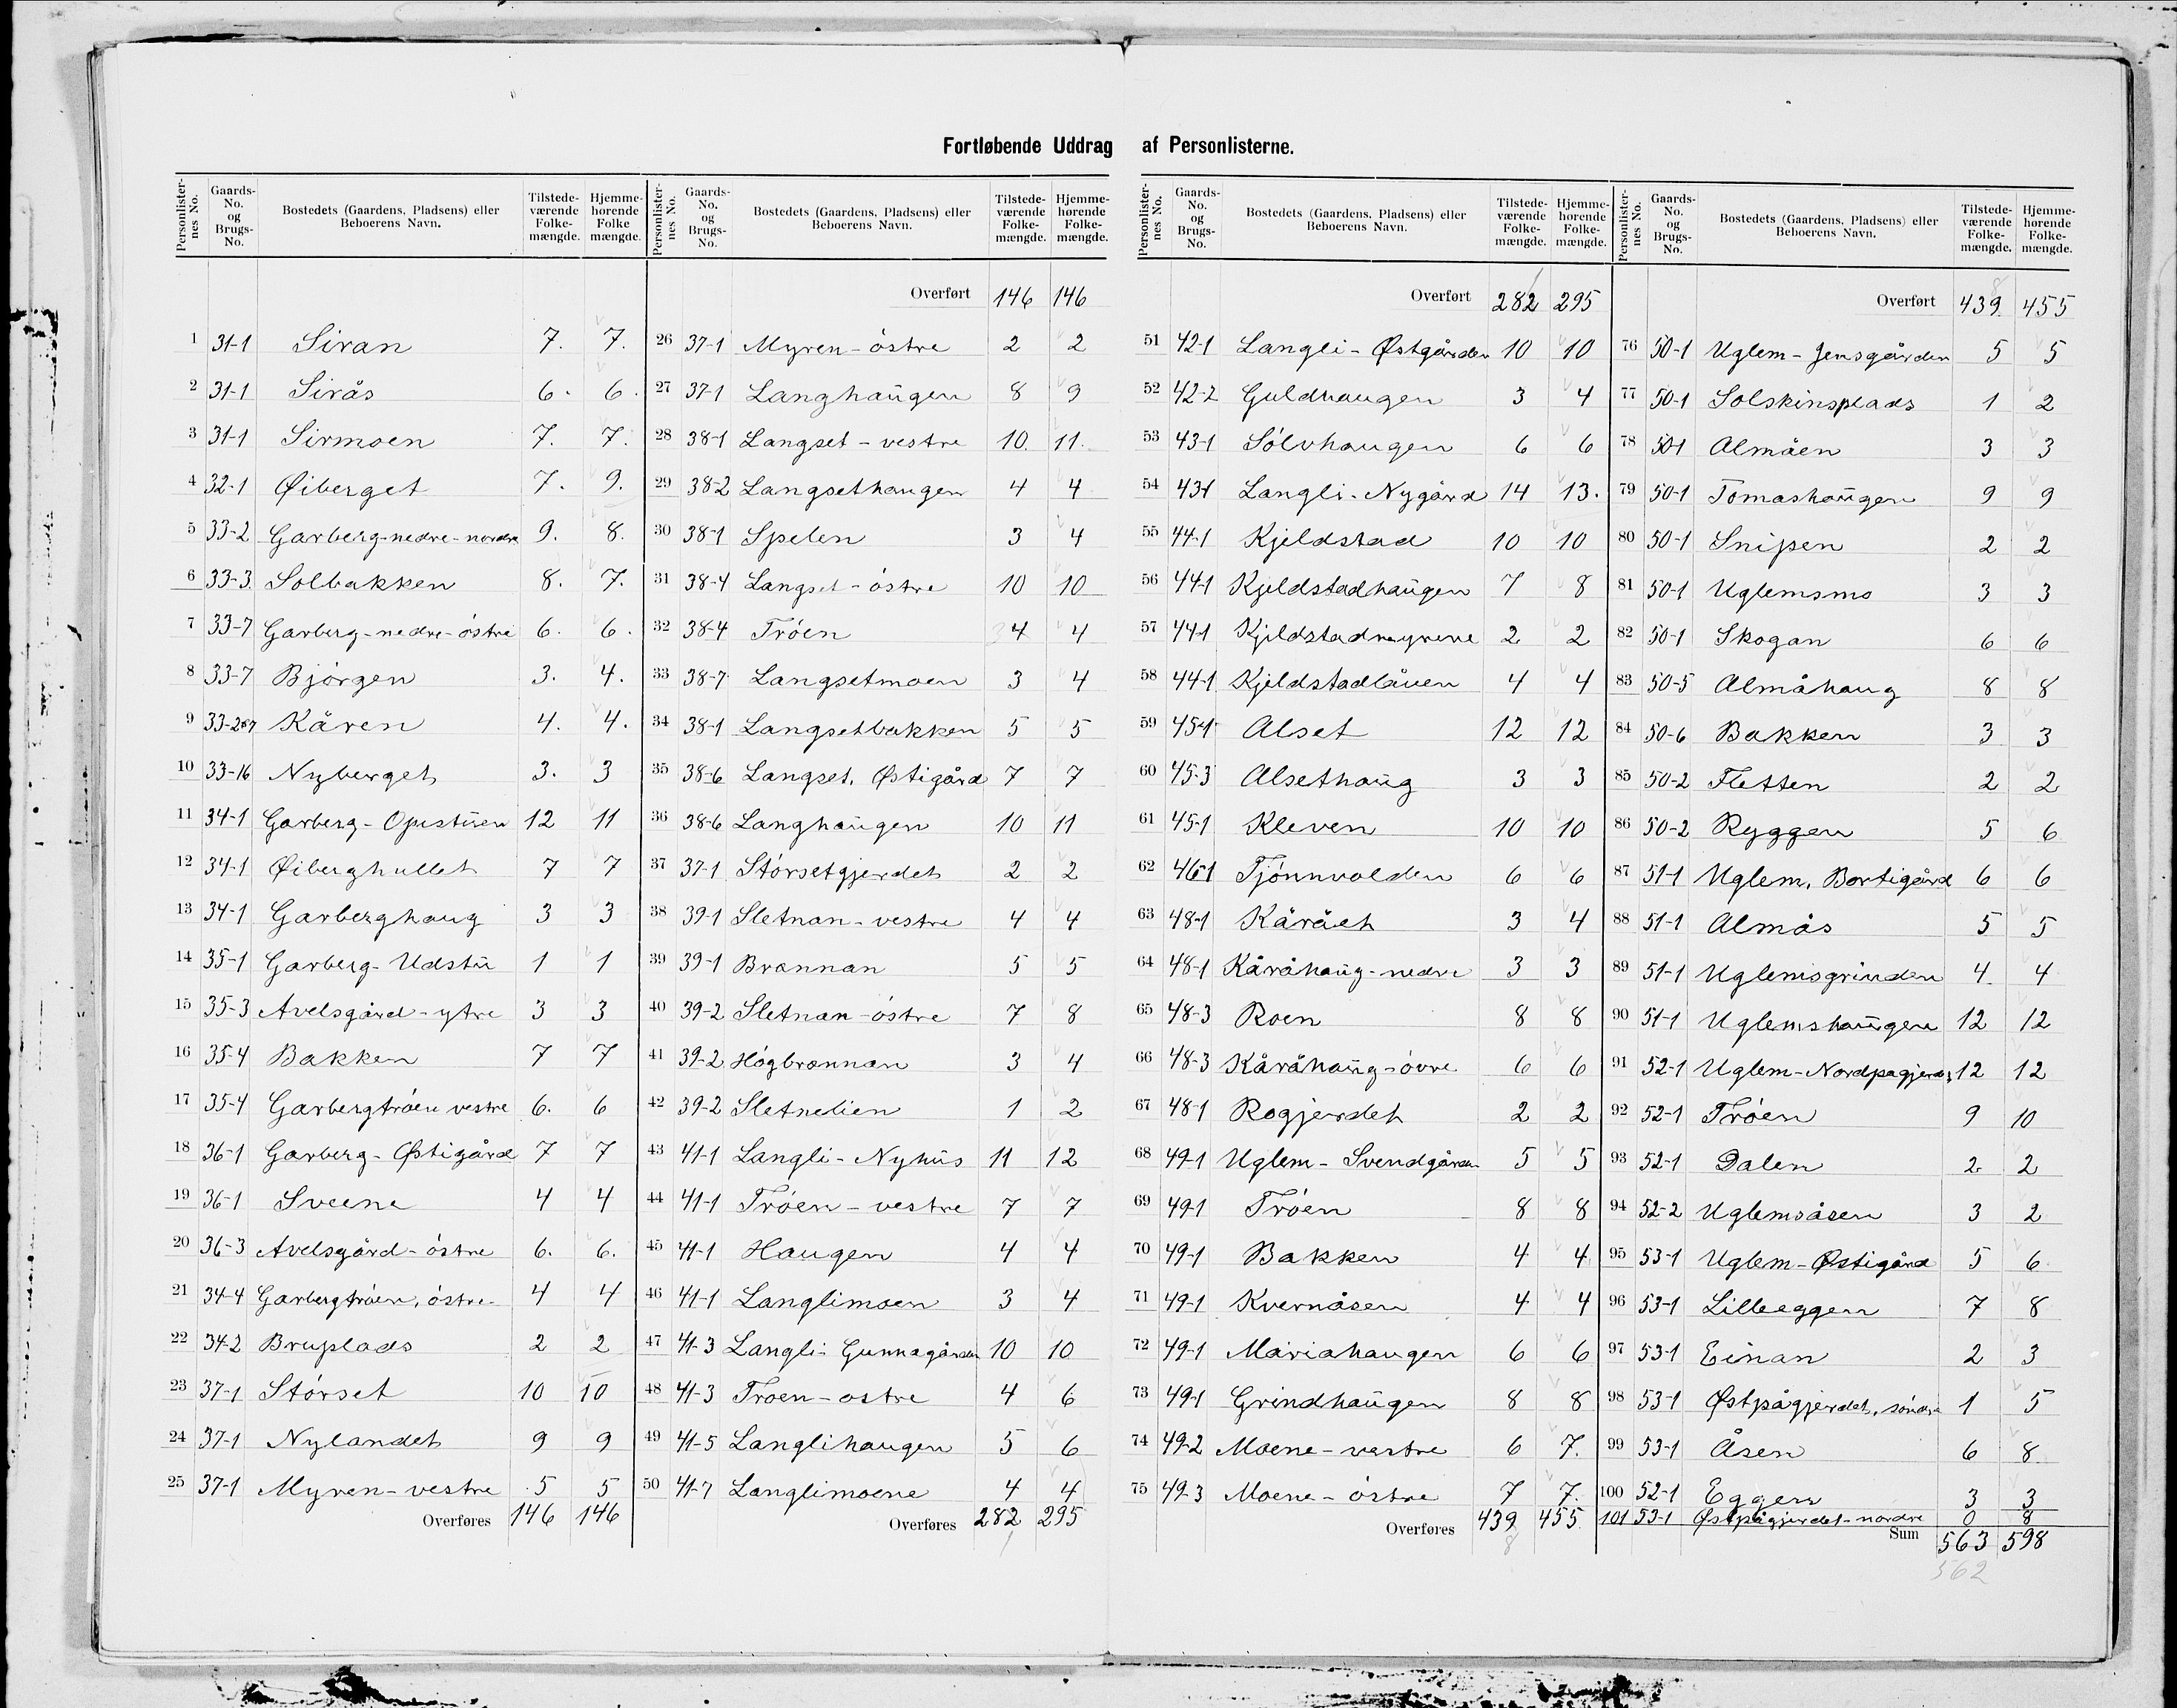 Fortløbende Uddrag af Personlisterne.
Personlister-nes No. Gaards-No. og Brugs-No. Bostedets (Gaardens, Pladsens) eller Beboerens Navn. Tilstede-værende Folke-mængde. Hjemme-hørende Folke mængde.
1 31-1 Siran 7. 7.
2 31-1 Sirås 6. 6.
3 31-1 Sirmoen 7. 7.
4 32-1 Øiberget 7. 9.
5 33-2 Garberg-nedre-nordre 9. 8.
6 33-3 Solbakken 8. 7.
7 33-7 Garberg-nedre-östre 6. 6.
8 33-7 Bjørgen 3. 4.
9 33-2o7 Kåren 4. 4.
10 33-16 Nyberget 3. 3
11 34-1 Garberg-Opistuen 12 11
12 34-1 Øiberghullet 7 7
13 34-1 Garberghaug 3 3
14 35-1 Garberg-Udstu 1 1
15 35-3 Avelsgård-ytre 3 3
16 35-4 Bakken 7 7
17 35-4 Garbergtröen vestre 6. 6
18 36-1 Garberg-Østigård 7 7
19 36-1 Sveene 4 4
20 36-3 Avelsgård-östre 6. 6.
21 34-4 Garbergtröen, östre 4 4
22 34-2 Bruplads 2 2
23 37-1 Störset 10 10
24 37-1 Nylandet 9 9
25 37-1 Myren-vestre 5 5
Overføres 146 146
Personlister-nes No. Gaards-No. og Brugs-No. Bostedets (Gaardens, Pladsens) eller Beboerens Navn. Tilstede-værende Folke-mængde. Hjemme-hørende Folke-mængde.
Overført 146 146
26 37-1 Myren-östre 2 2
27 37-1 Langhaugen 8 9
28 38-1 Langset-vestre 10. 11.
29 38-2 Langsethaugen 4 4
30 38-1 Spelen 3 4
31 38-4 Langset-östre 10 10
32 38-4 Tröen 4 4
33 38-7 Langsetmoen 3 4
34 38-1 Langsetbakken 5 5
35 38-6 Langset, Østigård 7 7
36 38-6 Langhaugen 10 11
37 37-1 Störsetgjerdet 2 2
38 39-1 Sletnan-vestre 4 4
39 39-1 Brannan 5 5
40 39-2 Sletnan-östre 7 8
41 39-2 Högbrannan 3 4
42 39-2 Sletnelien 1 2
43 41-1 Langli-Nyhus 11 12
44 41-1 Tröen-vestre 7 7
45 41-1 Haugen 4 4
46 41-1 Langlimoen 3 4
47 41-3 Langli-Gunnagården 10 10
48 41-3 Troen-ostre 4 6
49 41-5 Langlihaugen 5 6
50 41-7 Langlimoene 4 4
Overføres 282 295
1
Personlister-nes No. Gaards-No. og Brugs-No. Bostedets (Gaardens, Pladsens) eller Beboerens Navn. Tilstede-værende Folke-mængde. Hjemme-hørende Folke-mængde.
1
Overført 282 295
51 42-1 Langli-Østgården 10 10
52 42-2 Guldhaugen 3 4
53 43-1 Sölvhaugen 6 6
54 43-1 Langli-Nygård 14 13.
55 44-1 Kjeldstad 10 10
56 44-1 Kjeldstadhaugen 7 8
57 44-1 Kjeldstadmyrene 2 2
58 44-1 Kjeldstadlåuen 4 4
59 45-1 Alset 12 12
60 45-3 Alsethaug 3 3
61 45-1 Kleven 10 10
62 46-1 Tjönnvolden 6 6
63 48-1 Kårået 3 4
64 48-1 Kåråhaug-nedre 3 3
65 48-3 Roen 8 8
66 48-3 Kåråhaug-övre 6 6
67 48-1 Rogjerdet 2 2
68 49-1 Uglem-Svendgården 5 5
69 49-1 Tröen 8 8
70 49-1 Bakken 4 4
71 49-1 Kvernåsen 4 4
72 49-1 Mariahaugen 6 6
73 49-1 Grindhaugen 8 8
74 49-2 Moene-vestre 6 7.
75 49-3 Moene-östre 7 7.
Overføres 439 455
8
Personlister-nes No. Gaards-No. og Brugs-No. Bostedets (Gaardens, Pladsens) eller Beboerens Navn. Tilstede-værende Folke-mængde. Hjemme-hørende Folke-mængde.
8
Overført 439 455
76 50-1 Uglem-Jensgården 5 5
77 50-1 Solskinsplads 1 2
78 50-1 Almåen 3 3
79 50-1 Tomashaugen 9 9
80 50-1 Snipen 2 2
81 50-1 Uglemsmo 3 3
82 50-1 Skogan 6 6
83 50-5 Almåhaug 8 8
84 50-6 Bakken 3 3
85 50-2 Fletten 2 2
86 50-2 Ryggen 5 6
87 51-1 Uglem, Bortigård 6 6
88 51-1 Almås 5 5
89 51-1 Uglemsgrinden 4 4
90 51-1 Uglemshaugen 12 12
91 52-1 Uglem-Nordpagjerdet 12 12
92 52-1 Tröen 9 10
93 52-1 Dalen 2 2
94 52-2 Uglemsåsen 3 2
95 53-1 Uglem-Østigård 5 6
96 53-1 Lilleeggen 7 8
97 53-1 Einan 2 3
98 53-1 Østpågjerdet, söndre 1 5
99 53-1 Åsen 6 8
100 52-1 Eggen 3 3
101 53-1 Østpågjerdet-nordre 0 8
Sum 563 598
562